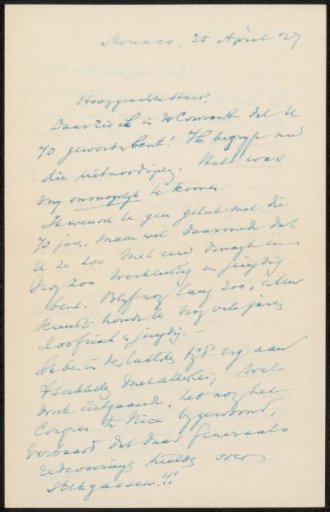 Monaco, 25 April '27
Hooggeachte Heer,
Daar zie ik in de Courant dat U
70 geworden bent! Ik begrijp nu
die uitnoodiging. Het was
mij onmogelijk te komen.
Ik wensch U geen geluk met die
70 jaar, maar wel daarmede dat
U ze zoo met eere draagt en
nog zoo werklustig en jeugdig
bent. Blijf nog lang zoo, Uw
kunst houde U nog vele jaren
zoo frisch & jeugdig. —
Ik ben in de laatste tijd erg aan
't
met allerlei, veel
druk uitgaande, heb nog het
Congres te Nice bijgewoond,
verbaasd dat daar Generaals
hielden over
Stikgassen!!!